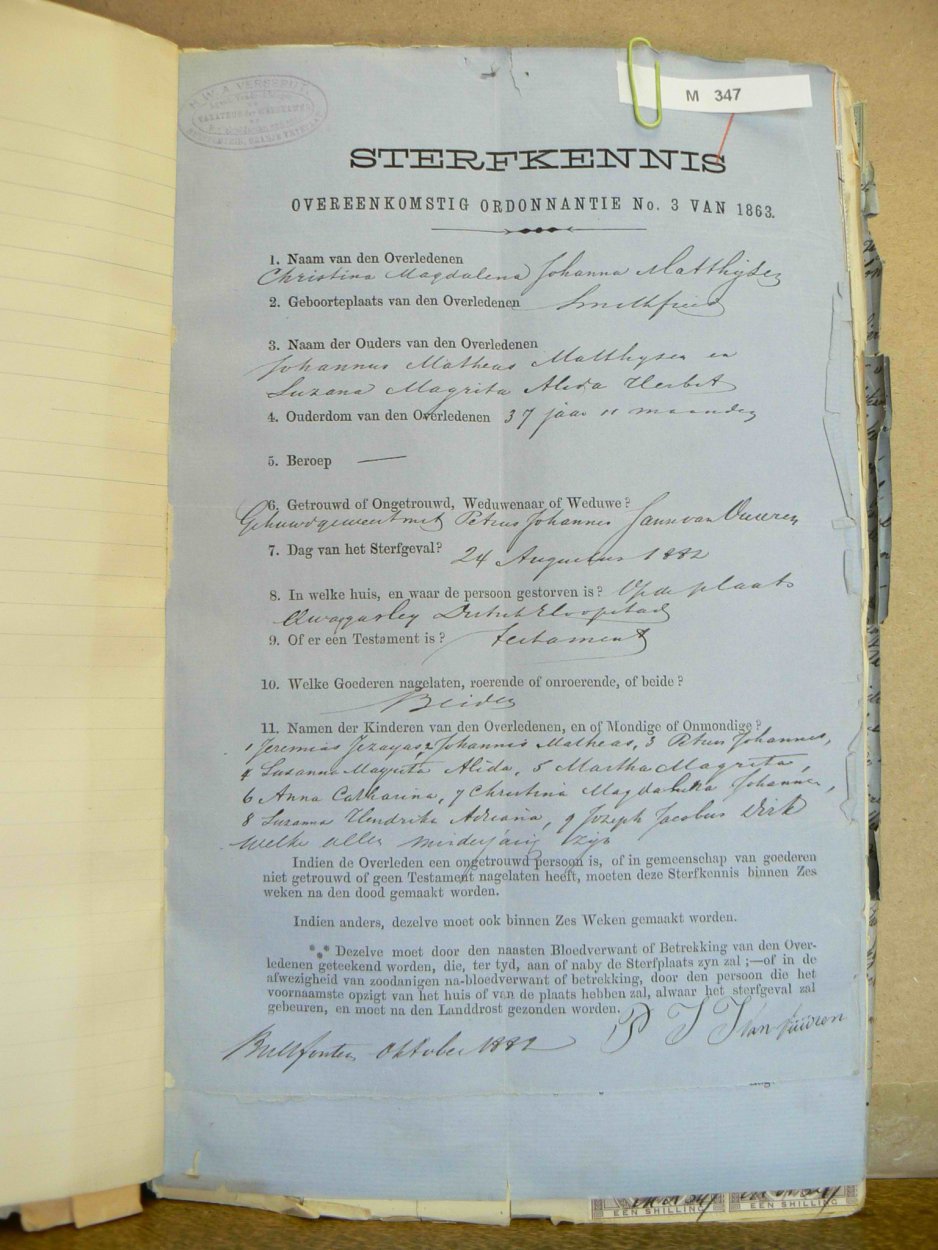 M 347
STERFKENNIS
OVEREENKOMSTIG ORDONNANTIE No. 3 VAN 1863.
1. Naam van den Overledenen
Christina Magdalena Johanna Matthysen
2. Geboorteplaats van den Overledenen Smithfield
3. Naam der Ouders van den Overledenen
Johannus Matheas Matthysen en
Suzana Magrita Alida Herbst
4. Ouderdom van den Overledenen 37 jaar 11 maanden
5. Beroep —
6. Getrouwd of Ongetrouwd, Weduwenaar of Weduwe?
Gehuwd geweest met Petrus Johannes van Vuuren
7. Dag van het Sterfgeval? 24 Augustus 1882
8. In welke huis, en waar de persoon gestorven is? Op de plaats
9. Of er een Testament is? Testament
10. Welke Goederen nagelaten, roerende of onroerende, of beide?
Beide
11. Namen der Kinderen van den Overledenen, en of Mondige of Onmondige?
1 Jeremias Jezayas, 2 Johannis Matheas, 3 Petrus Johannes,
4 Susanna Magrita Alida, 5 Martha Magrita,
6 Anna Catharina, 7 Christina Magdalena Johanna,
8 Suzanna Hendrika Adriana, 9 Jozeph Jacobus Dirk
welke alle minderjarig zijn
Indien de Overleden een ongetrouwd persoon is, of in gemeenschap van goederen
niet getrouwd of geen Testament nagelaten heeft, moeten deze Sterfkennis binnen Zes
weken na den dood gemaakt worden.
Indien anders, dezelve moet ook binnen Zes Weken gemaakt worden.
*** Dezelve moet door den naasten Bloedverwant of Betrekking van den Over-
ledenen geteekend worden, die, ter tyd, aan of naby de Sterfplaats zyn zal ;—of in de
afwezigheid van zoodanigen na-bloedverwant of betrekking, door den persoon die het
voornaamste opzigt van het huis of van de plaats hebben zal, alwaar het sterfgeval zal
gebeuren, en moet na den Landdrost gezonden worden.
P J J van vuuren
Bultfontein Oktober 1882
EEN SHILLING EEN SHILLING